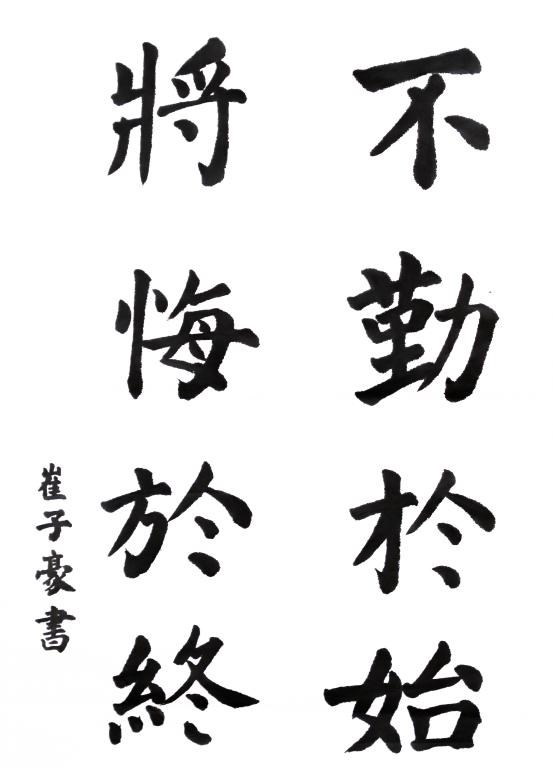 不勤於始
將悔於終
崔子豪書